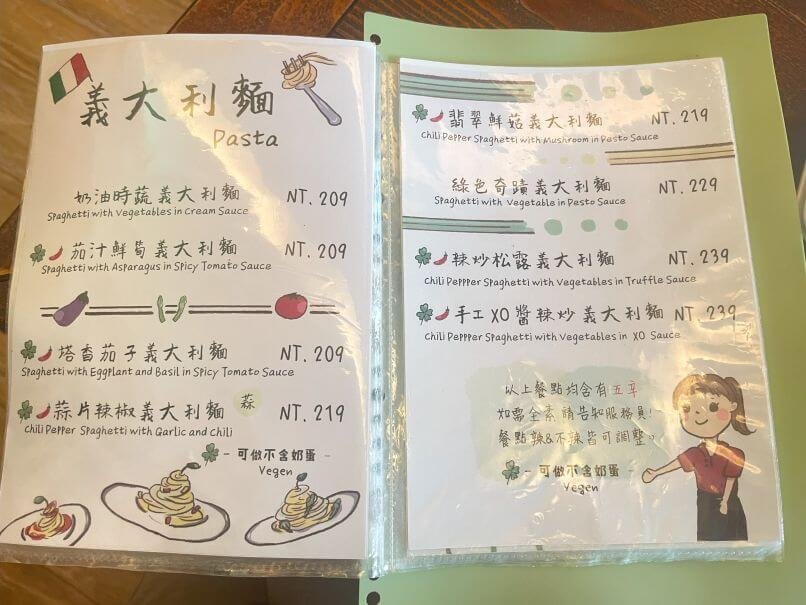 義大利麵
Pasta
奶油時蔬義大利麵 NT. 209
Spaghetti with Vegetables in Cream Sauce
茄汁鮮筍義大利麵 NT. 209
Spaghetti with Asparagus in Spicy Tomato Sauce
塔香茄子義大利麵 NT. 209
Spaghetti with Eggplant and Basil in Spicy Tomato Sauce
蒜片辣椒義大利麵 蒜 NT. 219
Chili Pepper Spaghetti with Garlic and Chili
- 可做不含奶蛋 -
Vegen
翡翠鮮菇義大利麵 NT. 219
Chili Pepper Spaghetti with Mushroom in Pesto Sauce
綠色奇蹟義大利麵 NT. 229
Spaghetti with Vegetable in Pesto Sauce
辣炒松露義大利麵 NT. 239
Chili Pepper Spaghetti with Vegetables in Truffle Sauce
手工XO醬辣炒義大利麵 NT. 239
Chili Peppper Spaghetti with Vegetables in XO Sauce
以上餐點均含有五辛
如需全素請告知服務員!
餐點辣&不辣皆可調整。
- 可做不含奶蛋 -
Vegen